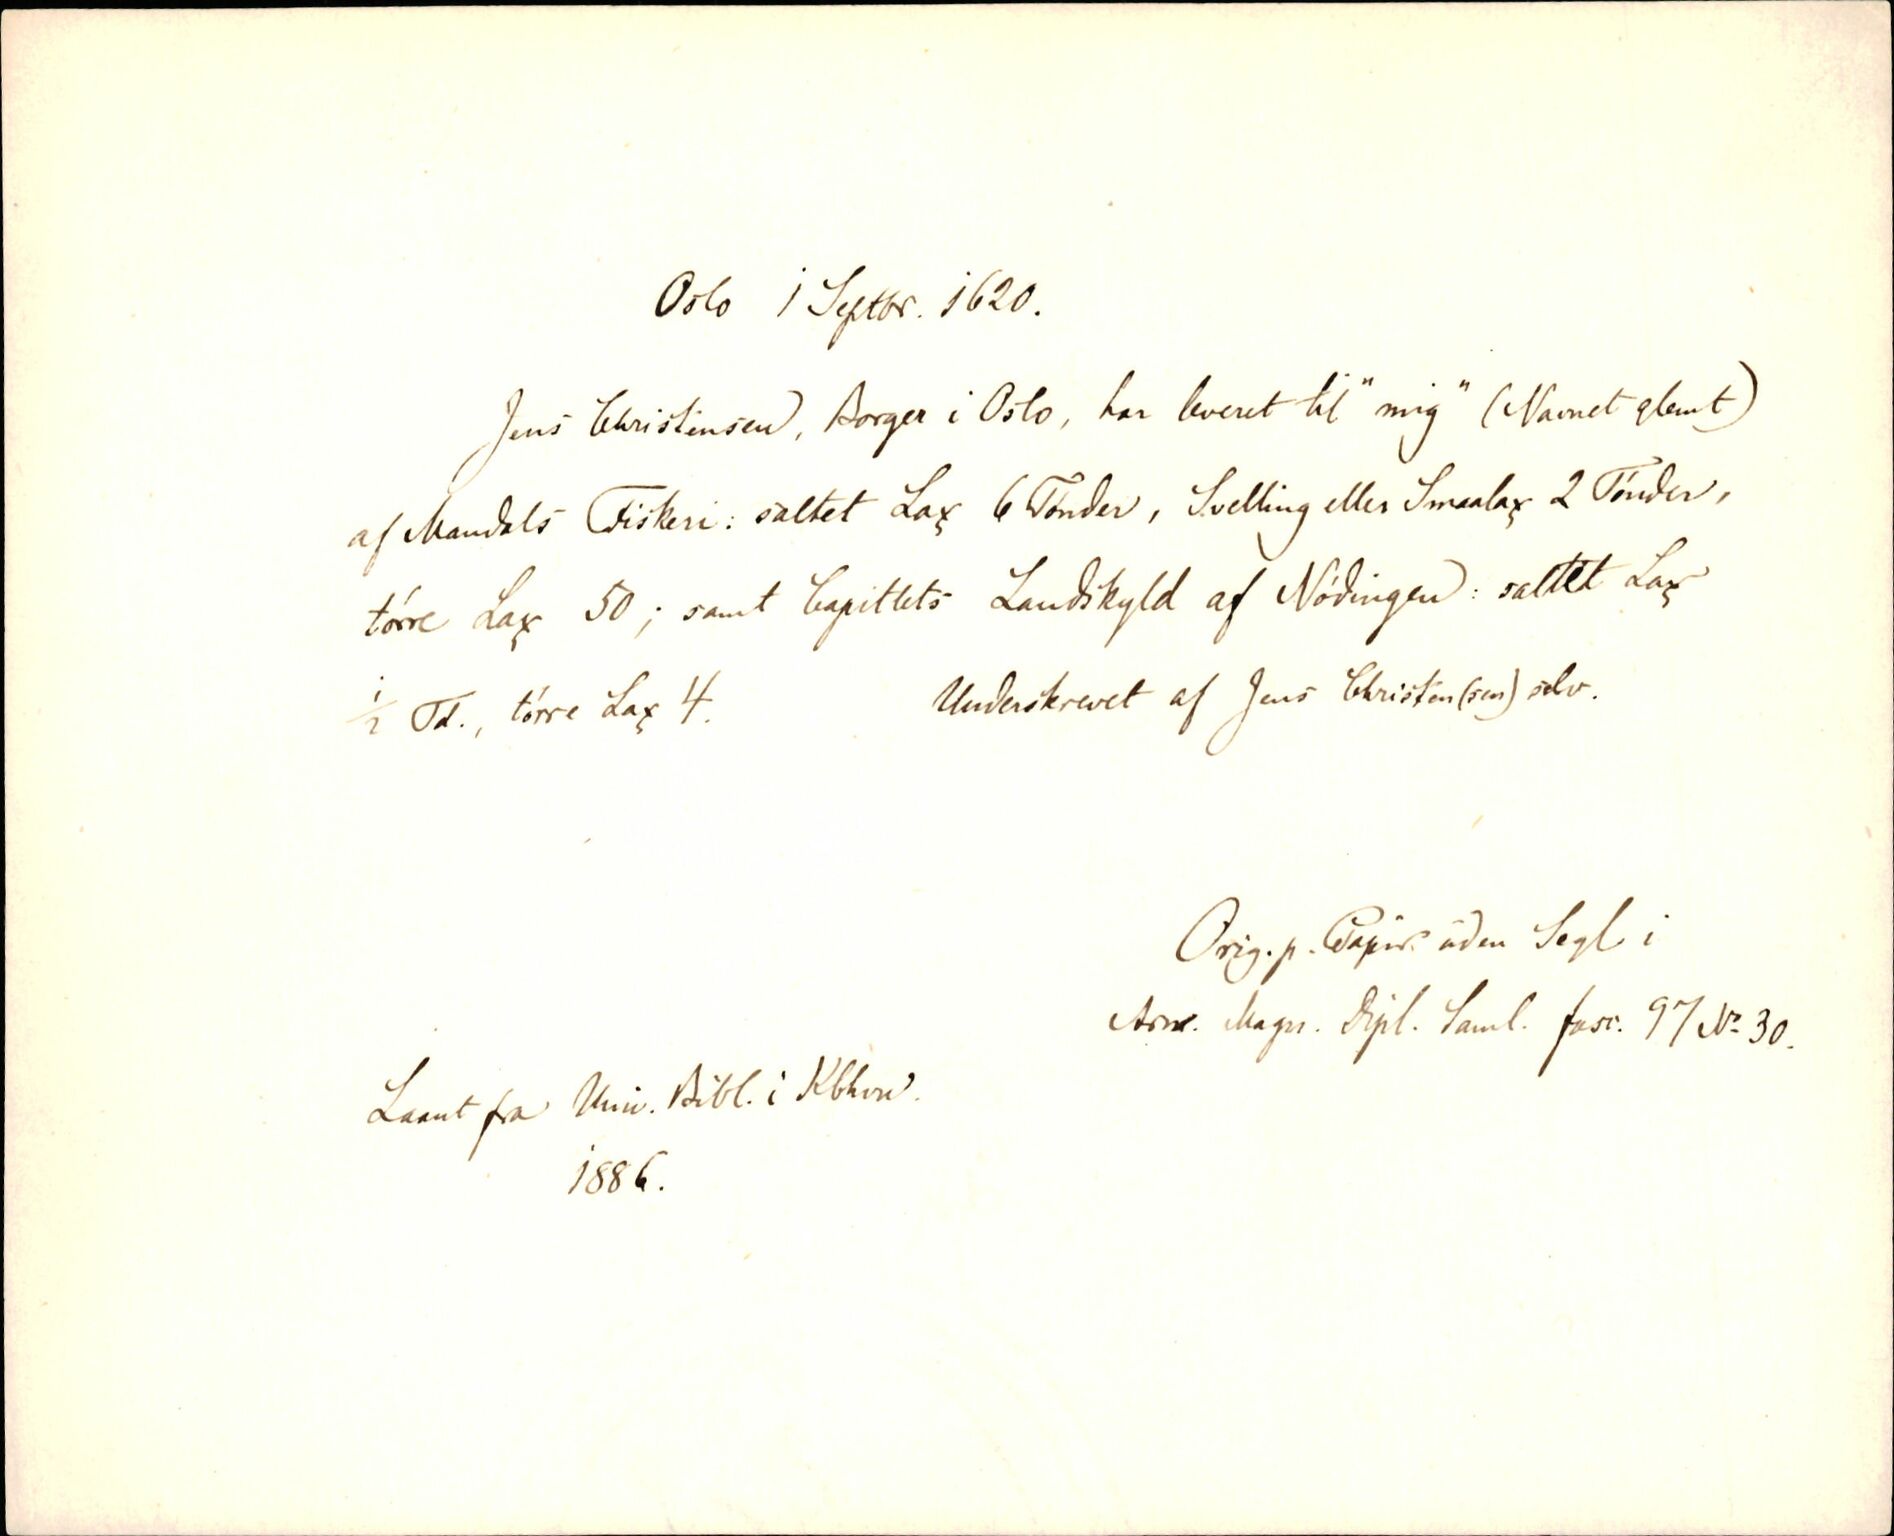 Oslo 1 Septbr. 1620.
Jens Christensen, Borger i Oslo, har leveret til "mig" (Navnet glemt)
af Mandals Fiskeri: saltet Lax 6 Tønder, Svelling eller Smaalax 2 Tønder,
tørre Lax 50; samt Capitlets Landskyld af Nödingen: saltet Lax
1/2 Td., tørre Lax 4. Underskrevet af Jens Christen(sen) selv.
Orig. p. Papir uden Segl i
Arn. Magn. Dipl. Saml. fasc. 97 No 30.
Laant fra Univ. Bibl. i Kbhvn.
1886.